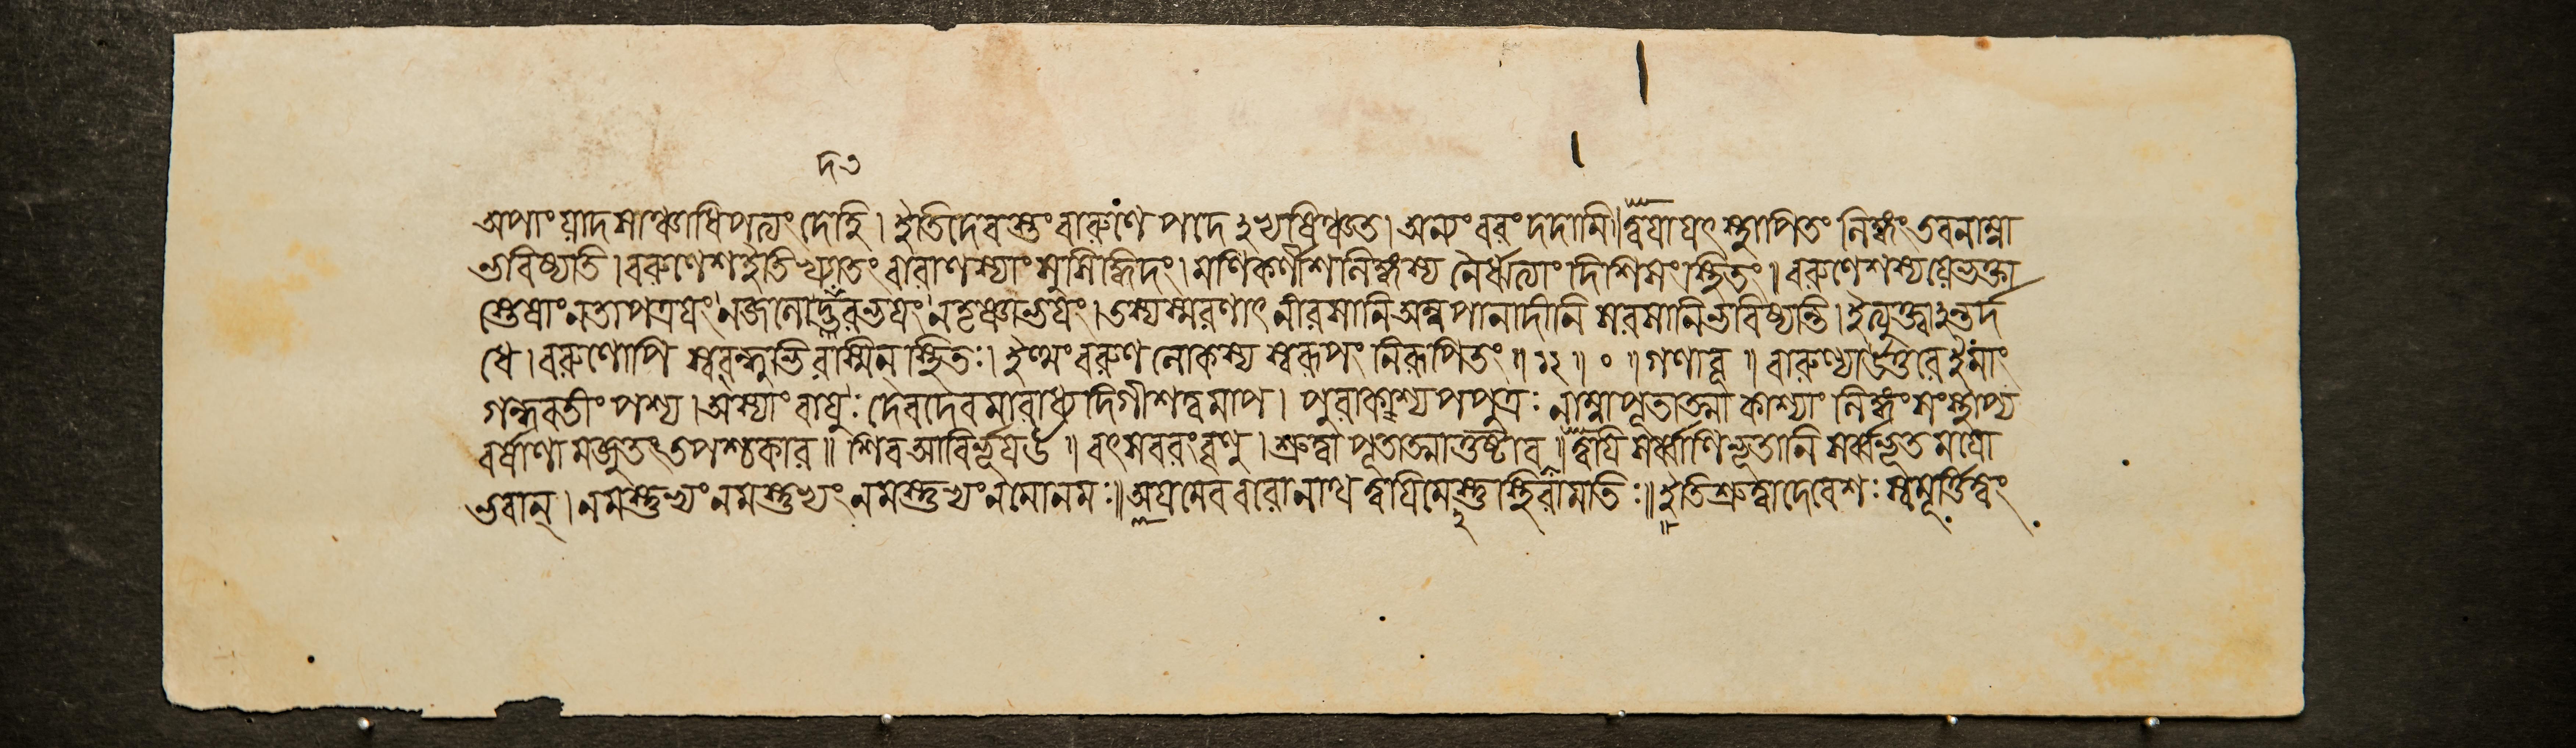 দত্ত
অপাং য়াদসাঞ্চাধিপত্যং দেহি। ইতিদেবস্তং বারুণে পদে ২ভ্যষিঞ্চত। অন্যং বরং দদানি। ত্বয়ায়ৎ স্থাপিতং লিঙ্গং তবনাম্না
ভবিষ্যতি। বরুণেশইতিখ্যাতং বারাণস্যাং সুসিদ্ধিদং। মণিকর্ণীশলিঙ্গস্য নৈর্ঋত্যাং দিশিসংস্থিতং॥ বরুণেশস্যয়েভক্তা
স্তেষাংনতাপত্রয়ং নজলোদ্ভবভয়ং নতৃষ্ণাভয়ং। তস্যস্মরণাৎ নীরসানিঅন্নপানাদীনি সরসানিভবিষ্যন্তি। ইত্যুক্ত্বা২ন্তর্দ
ধে। বরুণোপি স্বয়ন্তুভিরাস্মিন্ স্থিতঃ। ইত্থং বরুণলোকস্য স্বরূপং নিরূপিতং॥ ১২॥ ০॥ গণাবূ॥ বারুণ্যাউত্তরে ইমাং
গন্ধবতীং পশ্য। অস্যাং বায়ুঃ দেবদেবমারাধ্য দিগীশত্বমাপ। পুরাকশ্যপপুত্রঃ নাম্নাপূতাত্মা কাশ্যাং লিঙ্গং সংস্থাপ্য
বর্ষাণামজুতংতপশ্চকার॥ শিবআবির্ভূয়উ॥ বৎসবরংবৃণু। শ্রুত্বা পূতাত্মাতুষ্টাব॥ ত্বয়ি সর্ব্বাণিভূতানি সর্ব্বভূতময়ো
ভবান্। নমস্তুভ্যং নমস্তুভ্যং নমস্তুভ্যং নমোনমঃ॥ অয়মেববরোনাথ ত্বয়িমে২স্তু স্থিরামতিঃ॥ ইতিশ্রুত্বাদেবেশঃ স্বমূর্ত্তিত্বং